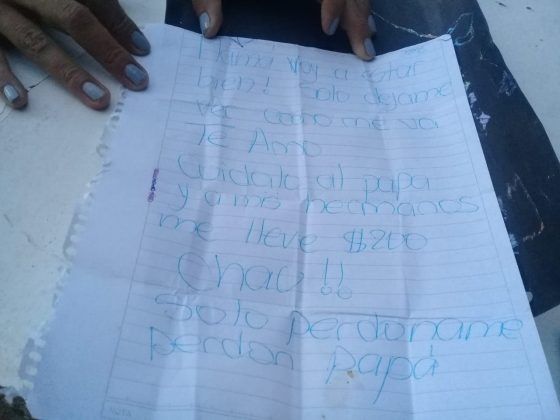 Mama Voy a estar
bien! Solo dejame
ver como me va
Te Amo
Cuidala al papa
y a mis hermanos
me lleve $200
Chao!!
Solo perdoname
perdon papá
NOTA